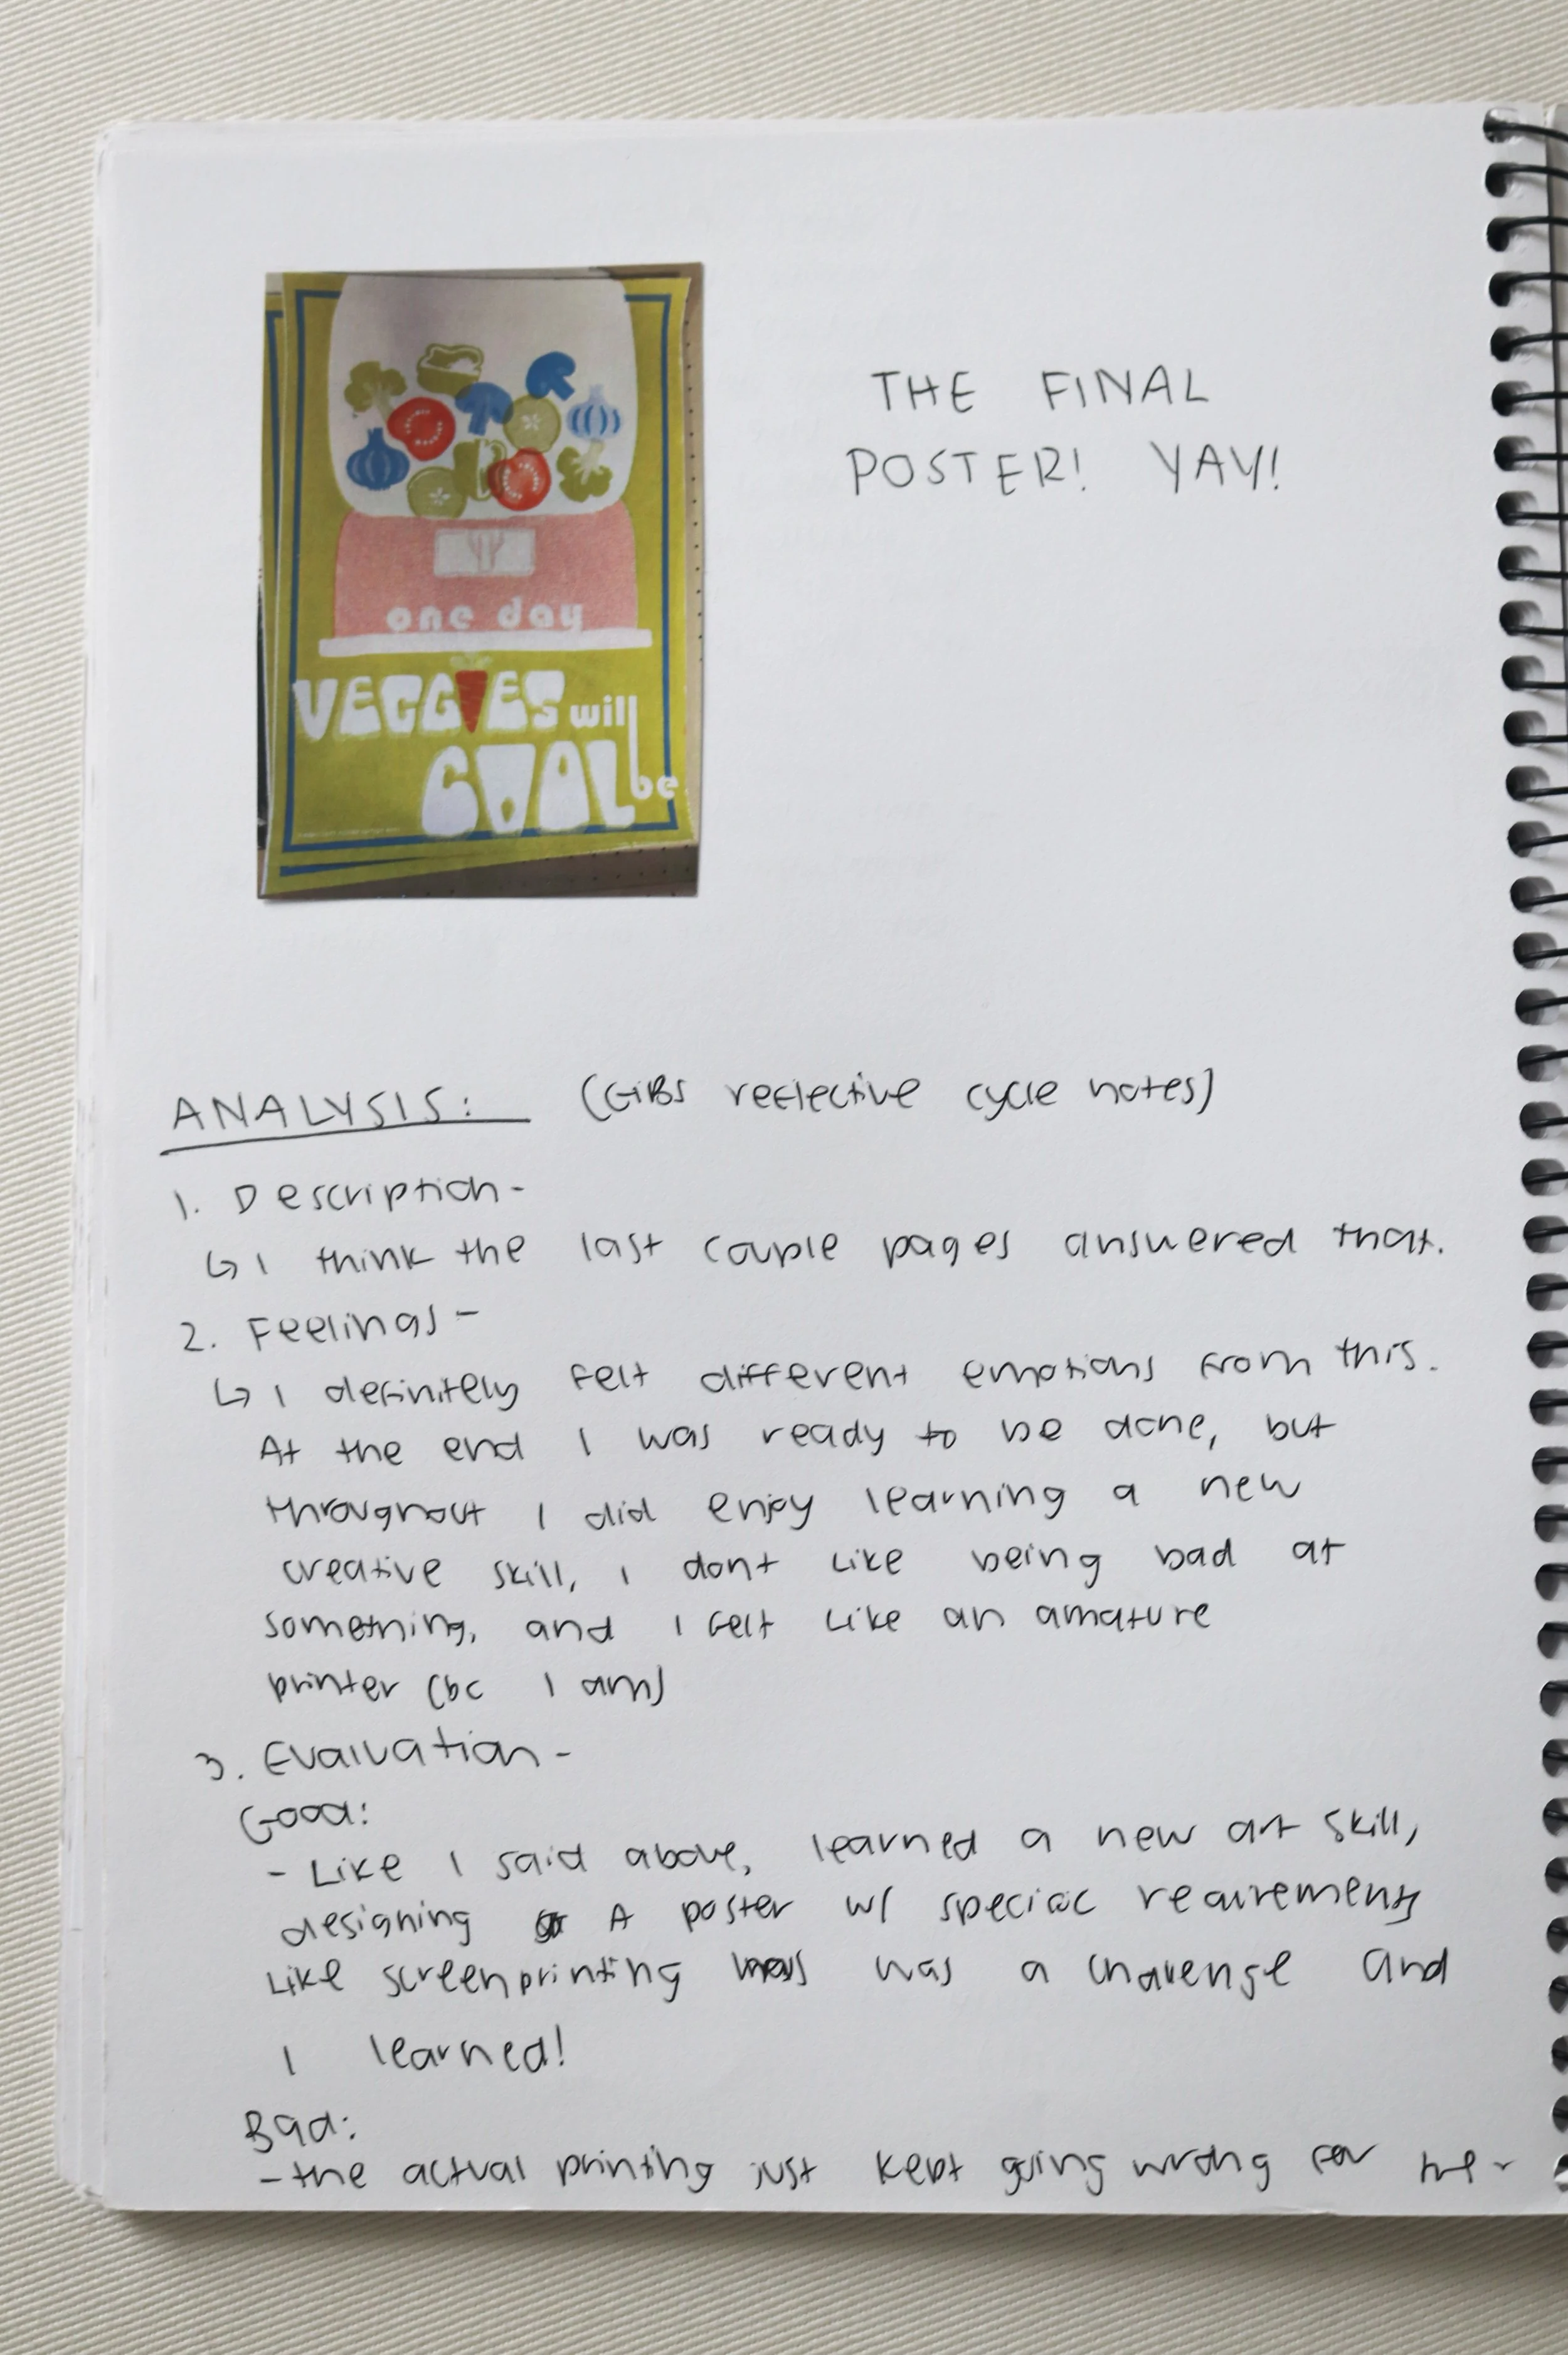 one day
VEGGIES will
COOL be
THE FINAL
POSTER! YAY!
ANALYSIS: (GiBS reflective cycle notes)
1. Description-
↳ I think the last couple pages answered that.
2. Feelings-
↳ I definitely felt different emotions from this.
At the end I was ready to be done, but
throughout I did enjoy learning a new
creative skill, I dont like being bad at
something, and I felt like an amature
printer (bc I am)
3. Evaluation-
Good:
- Like I said above, learned a new art skill,
designing A poster w/ specific reqirements
Like screenprinting was a challenge and
I learned!
Bad:
-the actual printing just kept going wrong for me-